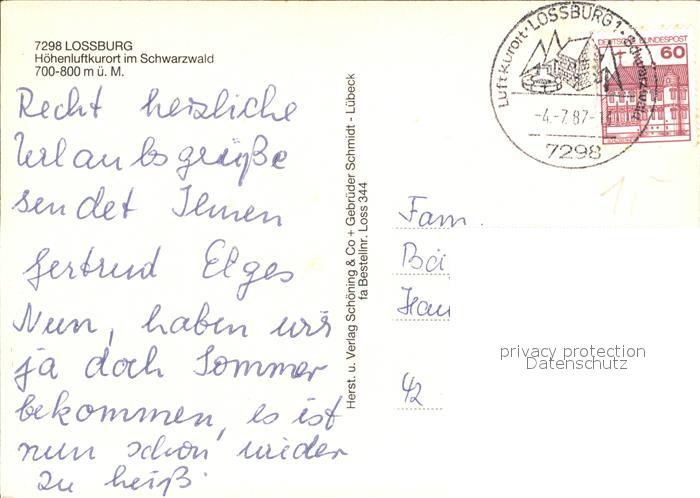 7298 LOSSBURG
Höhenluftkurort im Schwarzwald
700-800 m ü. M.
Recht herzliche
Urlaubsgrüße
sendet Ihnen
Gertrud Elges
Nun, haben wir
ja doch Sommer
bekommen, es ist
nun schon wieder
zu heiß.
Herst. u. Verlag Schöning & Co + Gebrüder Schmidt - Lübeck
fa Bestellnr. Loss 344
Luftkurort · LOSSBURG 1 · Schwarzwald
-4.-7.87-
7298
DEUTSCHE BUNDESPOST
60
1,-
Fam.
Bä
Hau
42
privacy protection
Datenschutz